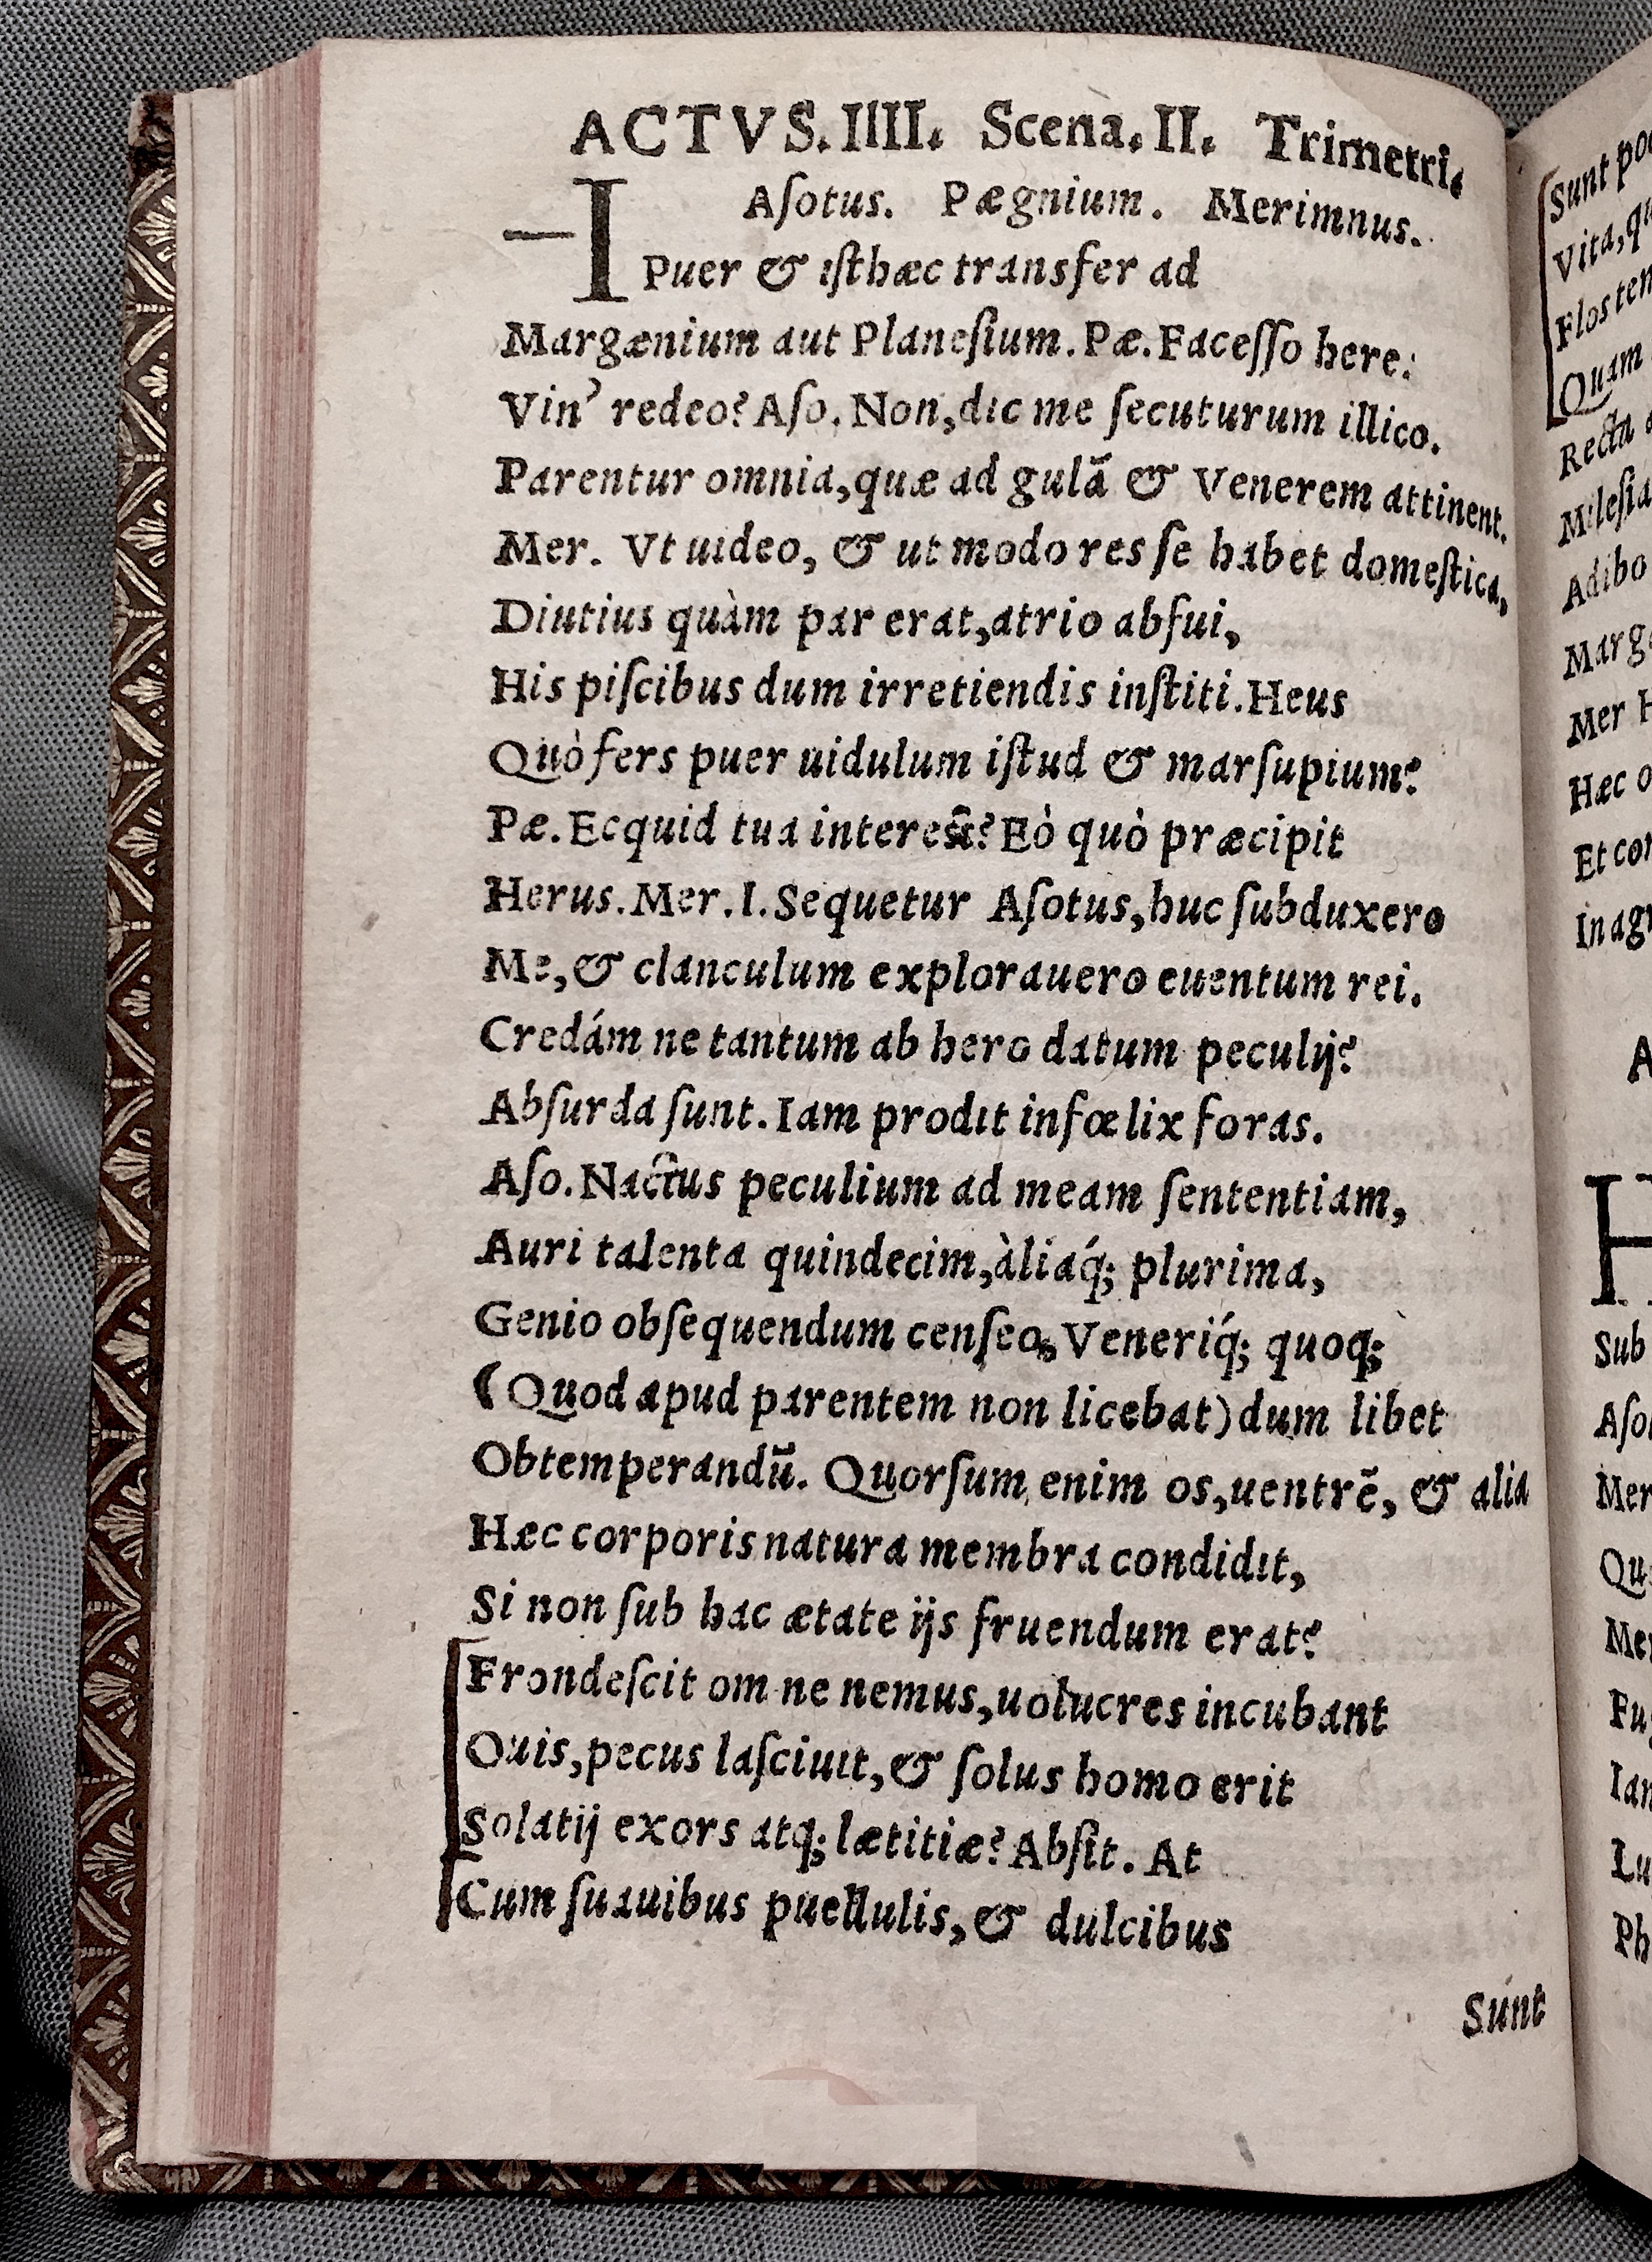 ACTVS. IIII. Scena. II. Trimetri.
Aſotus. Pægnium. Merimnus.
I Puer & iſthæc transfer ad
Margænium aut Planeſium. Pæ. Faceſſo here:
Vin' redeo? Aſo. Non, dic me ſecuturum illico.
Parentur omnia, quæ ad gulā & Venerem attinent.
Mer. Vt uideo, & ut modo res ſe habet domeſtica,
Diutius quàm par erat, atrio abfui,
His piſcibus dum irretiendis inſtiti. Heus
Quò fers puer uidulum iſtud & marſupium?
Pæ. Ecquid tua intereſt? Eò quò præcipit
Herus. Mer. I. Sequetur Aſotus, huc ſubduxero
Me, & clanculum explorauero euentum rei.
Credám ne tantum ab hero datum peculij?
Abſurda ſunt. Iam prodit infœlix foras.
Aſo. Nactus peculium ad meam ſententiam,
Auri talenta quindecim, àliaq́; plurima,
Genio obſequendum cenſeo, Veneriq́; quoq;
(Quod apud parentem non licebat) dum libet
Obtemperandū. Quorſum enim os, uentrē, & alia
Hæc corporis natura membra condidit,
Si non ſub hac ætate ijs fruendum erat?
Frondeſcit om ne nemus, uolucres incubant
Ouis, pecus laſciuit, & ſolus homo erit
Solatij exors atq; lætitiæ? Abſit. At
Cum ſuauibus puellulis, & dulcibus
Sunt
Vita, qu
Flos tem
Quam
Recta
Mileſia
Adibo
Marg
Mer H
Hæc o
Et con
In agr
A
H
Sub
Aſo
Mer
Qu
Me
Fu
Ia
Lu
Ph